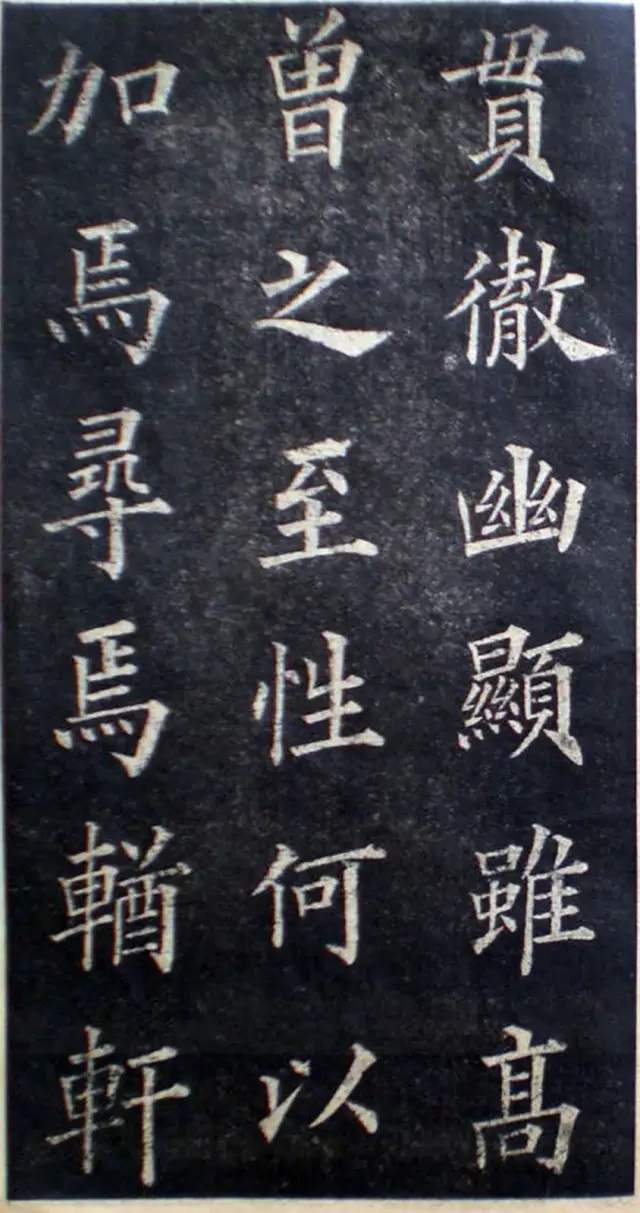 貫徹幽顯雖高
曾之至性何以
加焉尋焉輶軒